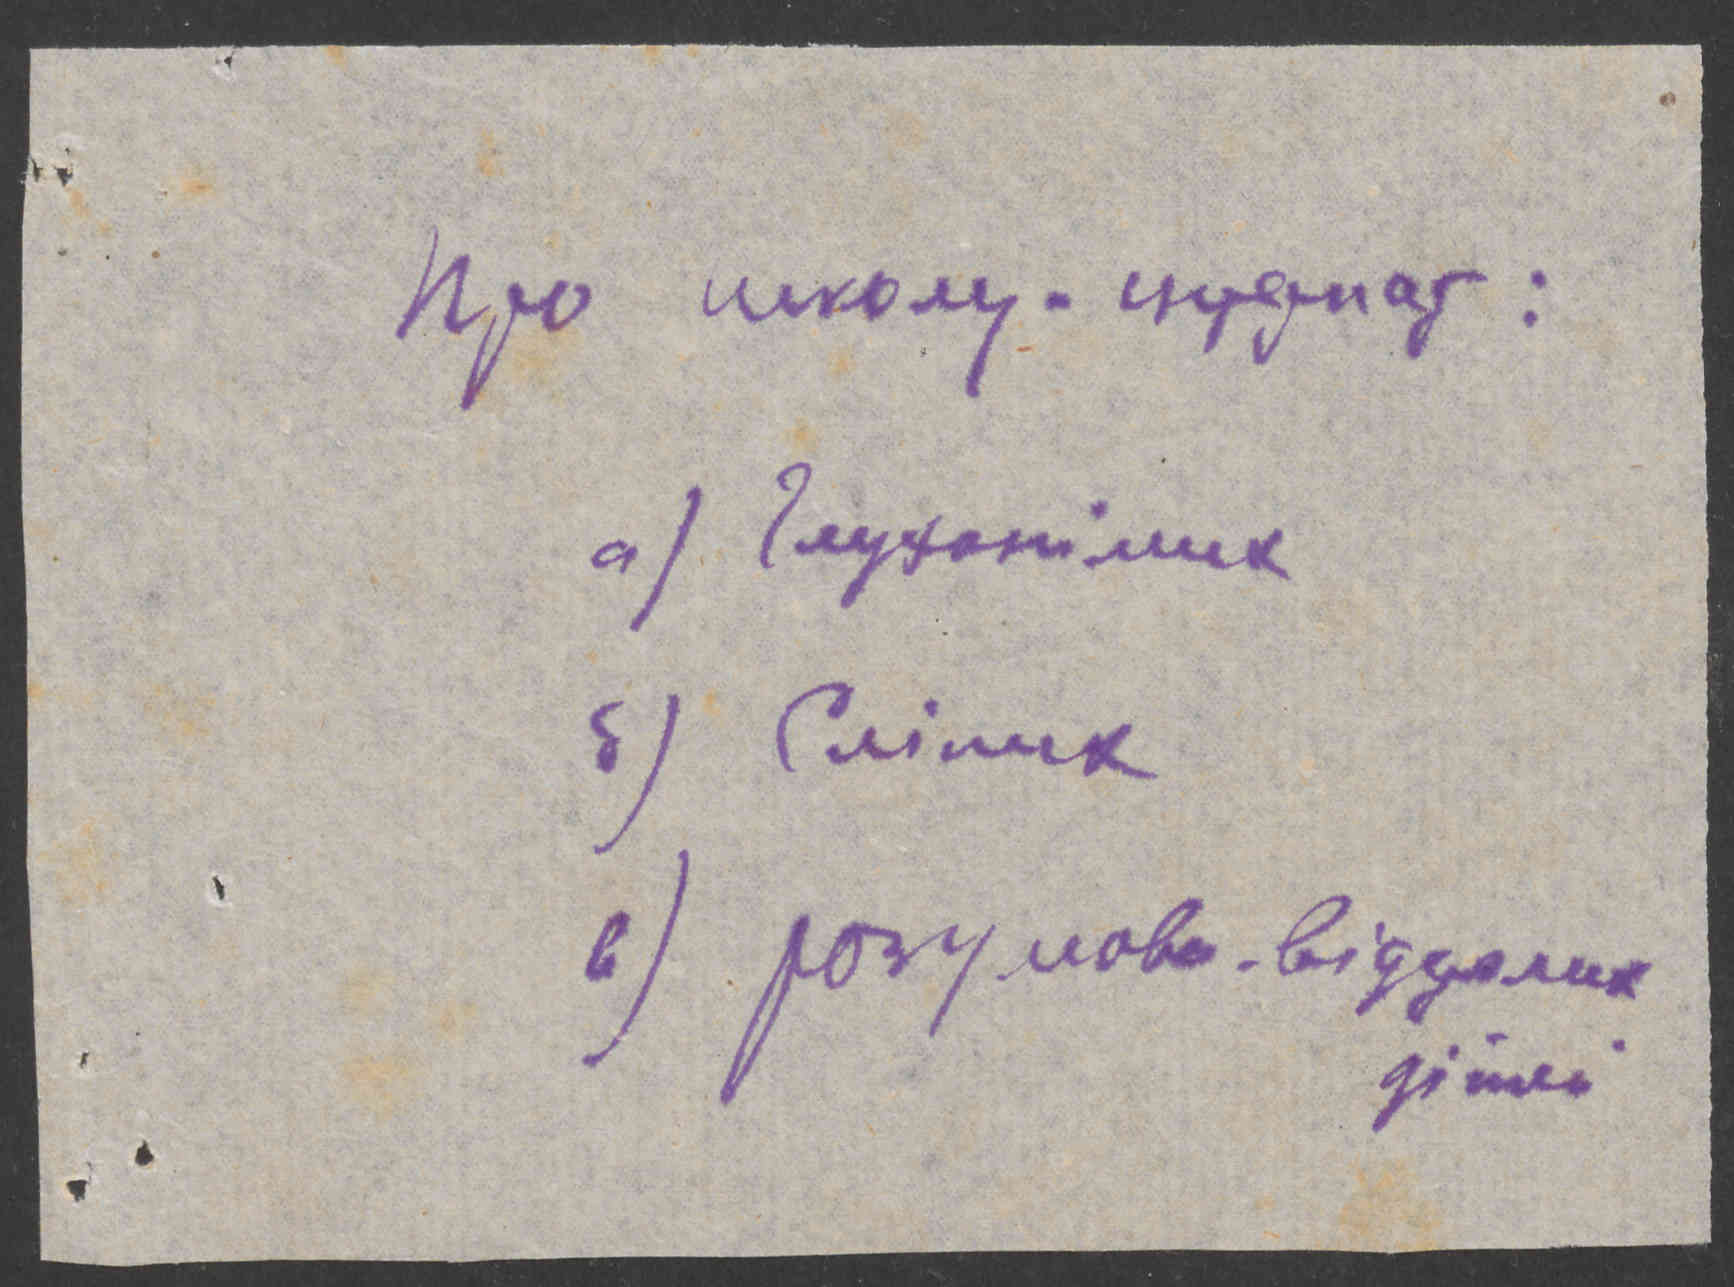 Про школу-інтернат:
а) Глухонімих
б) Сліпих
в) розумово-відсталих
дітей